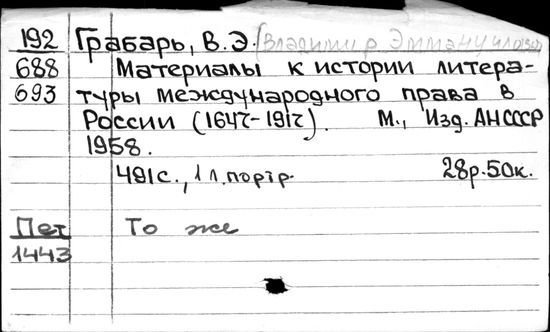 192 Грабарь, В.Э. (Владимир Эммануилович)
688 Материалы к истории литера-
693 туры международного права в
России (1647-1917). М., Изд. АН СССР
1958.
491с., 1 л.портр. 28р.50к.
Пет То же
1443